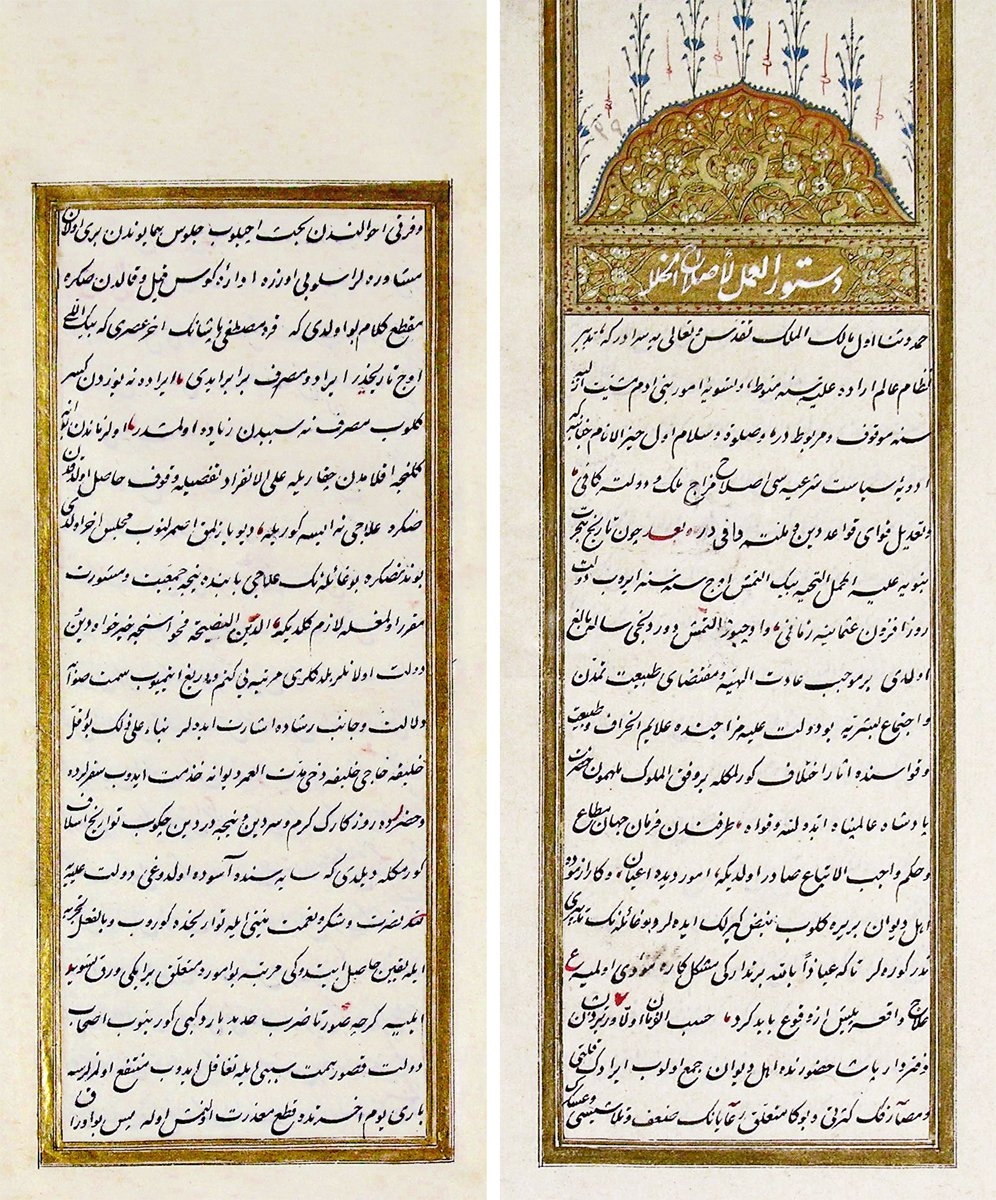 دستور العمل لأصلاح الخلل
حمد و ثنا اول مالك الملك تقدس و تعالى يه سزادر كه تدبير
نظام عالم اراده عليه سنه منوط و تسويۀ امور بنى ادم مشيت ازليه
سنه موقوف و مربوط در و صلوة و سلام اول خير الانام جنابنه كه
ادويۀ سياست شرعيه سى اصلاح مزاج ملك و دولته كافى
و تعديل قواى قواعد دين و ملته وافى در و بعد چون تاريخ هجرت
نبويه عليه اكمل التحيه بيك التمش اوج سنه سنه ايروب دولت
روز افزون عثمانيه زمانى دورنجى سالن بالغ
اولدى بر موجب عادت الهيه و مقتضاى طبيعت تمدن
و اجتماع بشريه بو دولت عليه مزاجنده علايم انحراف و طبيعت
و قواسنده اثار اختلاف كورلمكله بر وفق الملوك ملهمون حضرت
پادشاه عالمپناه ايده الله و قواه طرفندن فرمان جهان مطاع
و حكم واجب الاتباع صادر اولديكه امور ديده اعيان و كار ازموده
اهل ديوان بر يره كلوب نبض كيرلك ايده لر و بو غائله نك تدبيرى
ندر كوره لر تا كه عياذا بالله برندارك مشكل كاره مؤدى اولميه ع
علاج واقعه پيش از وقوع بايد كرد حسب الفرمان اولا وزيردن
دفتردار پاشا حضورنده اهل ديوان جمع اولوب ايرادك قلتى
و مصارفك كثرتى و بوكا متعلق رعايانك ضعف و عسكر
و فرقى احوالندن بحث اچيلوب جلوس همايوندن برى اولان
مشاوره لر اسلوبى اوزره اداره كوس قيل و قالدن صكره
مقطع كلام بو اولدى كه قره مصطفى پاشانك اخر عصرى كه بيك اللى
اوج تاريخيدر ايراد و مصرف برابر ايدى ايراده نه يوزدن كسر
كلوب مصرف نه سببدن زياده اولمشدر اول زماندن بو آنه
كلنجه اقلامدن چقاريله على الانفراد تفصيليله وقوف حاصل اولدقدن
صكره علاجى نه ايسه كوريله ديو يازلمق اصمرلنوب مجلس اخر اولدى
بوندنصكره بو غائله نك علاجى بابنده نيجه جمعيت و مشورت
مقرر اولمغله لازم كلديكه الدين النصيحة فحواسنجه خير خواه دين و
دولت اولانلر بلدكلرى مرتبه يى كتم و دريغ اتميوب سمت صوابه
دلالت و جانب رشاده اشارت ايده لر بناء على ذلك بو اقل
خليقه حاجى خليفه دخى مدت العمر ديوانه خدمت ايدوب سفرلرده
و حضرلرده روزكارك كرم و سردين و نيجه دردين چكوب تواريخ اسلاف
كورمكله ديلدى كه سايه سنده آسوده اولدوغى دولت عليه يه
نصرت و شكر نعمت نيتى ايله تواريخده كوروب و بالفعل تجربه
ايله يقين حاصل ايتدوكى مرتبه بو امور متعلق بر ايكى ورق تسويد
ايليه كرچه صورتا ضرب حديد بارد كبى كورينوب اصحاب
دولت قصور همت سببى ايله تغافل ايدوب منتفع اولمزلرسه
بارى يوم اخرتده قطع معذرت اولنمش اوله پس بو اوراق